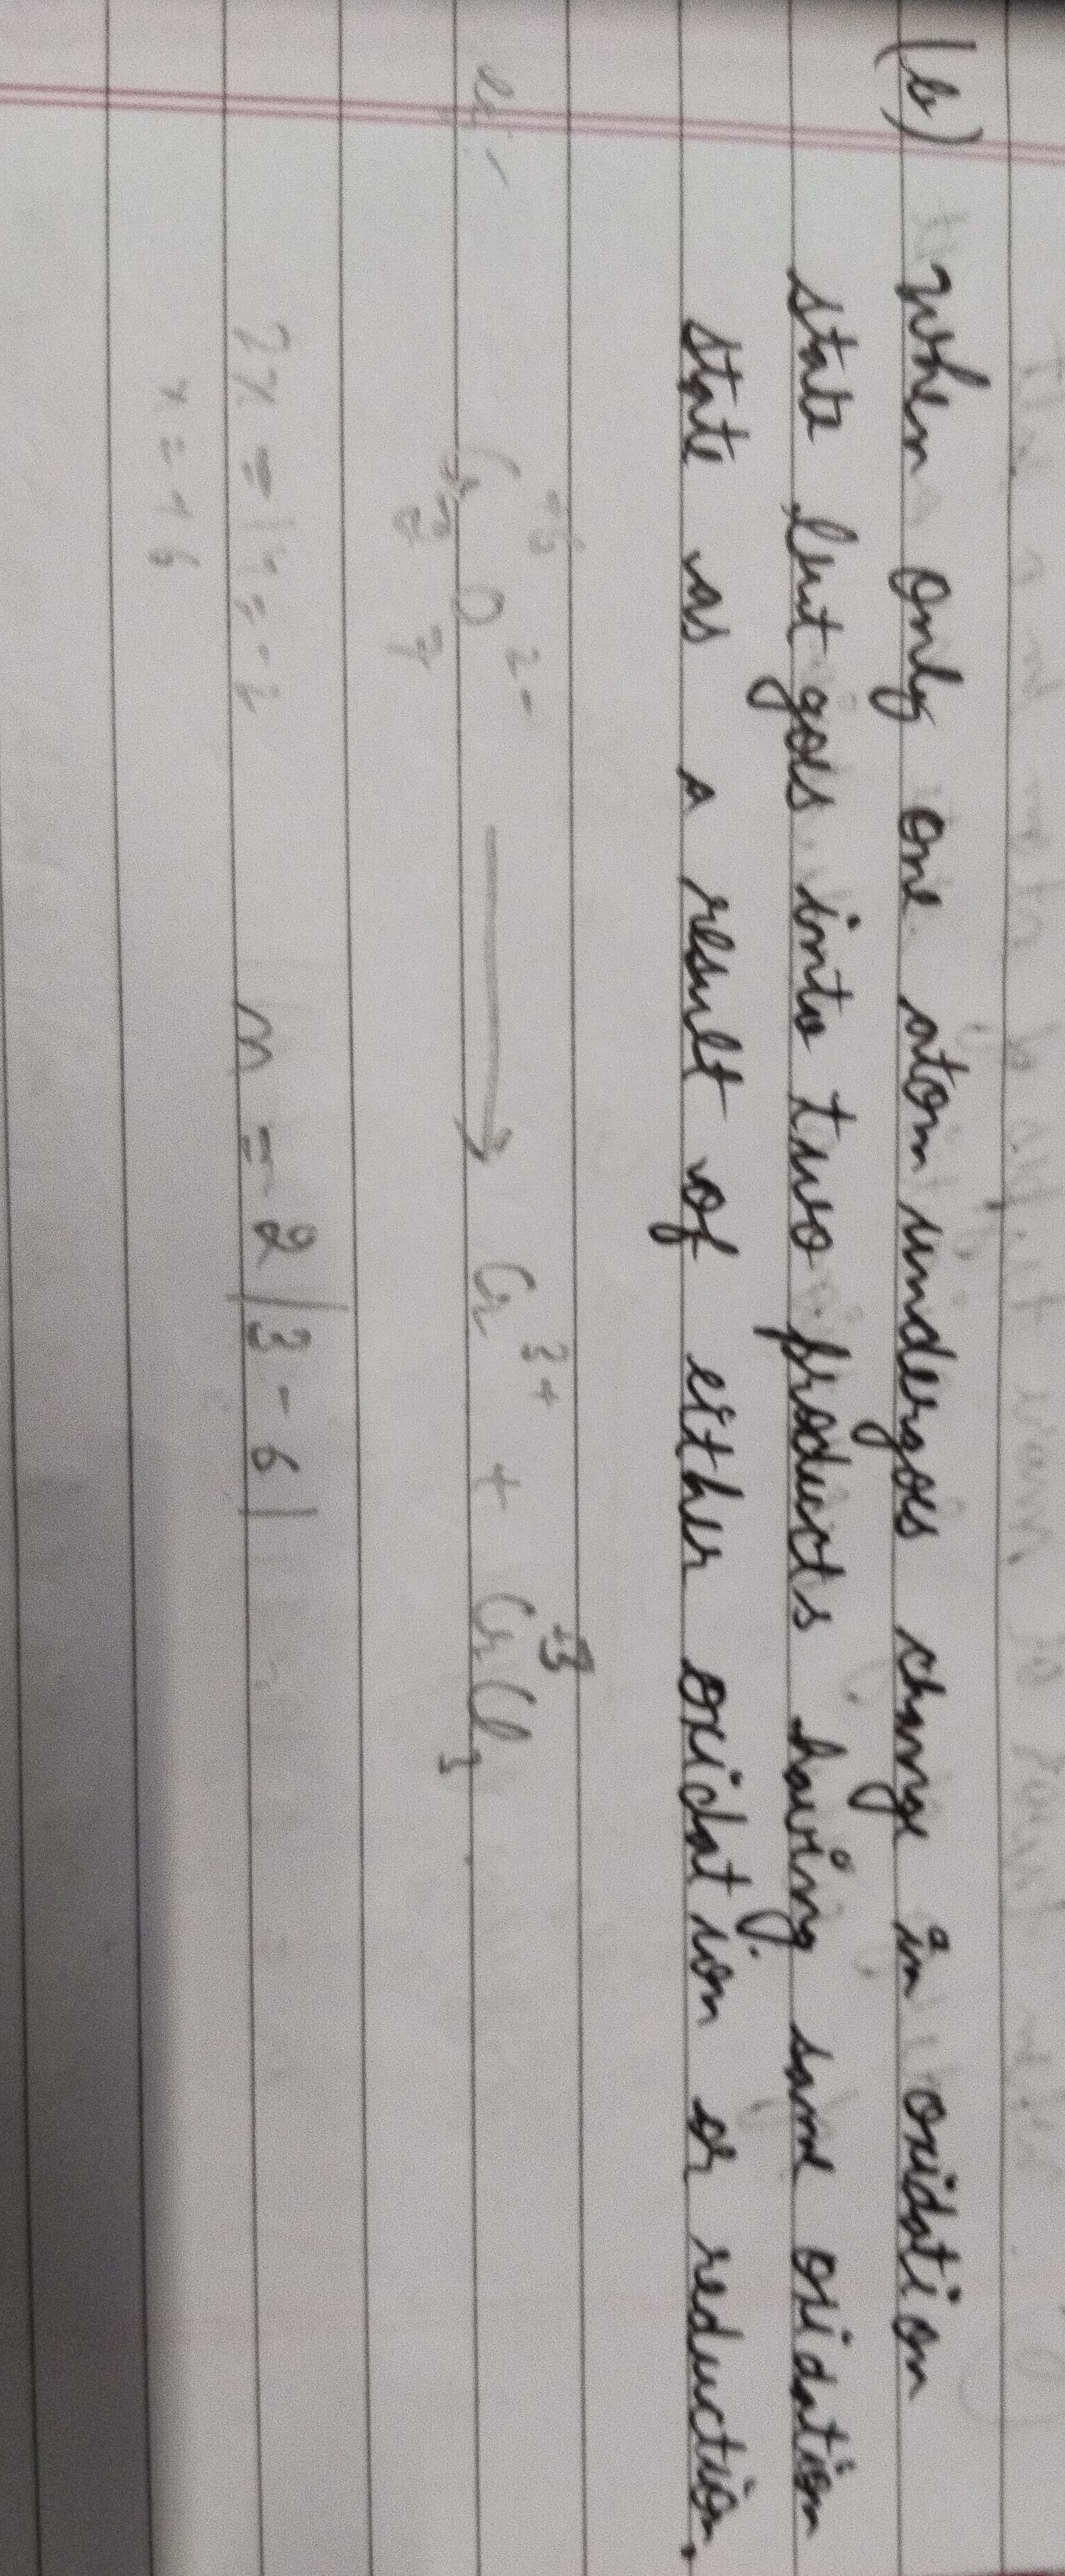 (b) when only one atom undergoes change in oxidation
state but goes into two products having same oxidation
state as a result of either oxidation or reduction.
eg:-
+6
Cr₂O₇²⁻ ⟶ Cr³⁺ + CrCl₃
+3
2x = 14 - 2
x = +6
n = 2|3-6|